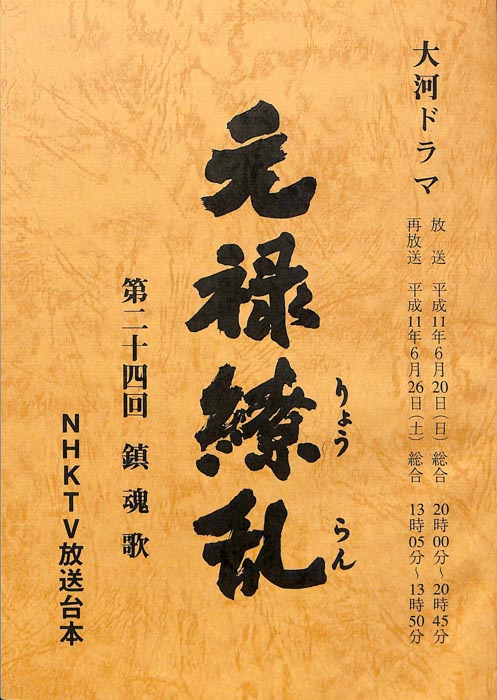 大河ドラマ
放送 平成11年6月20日(日) 総合 20時00分～20時45分
再放送 平成11年6月26日(土) 総合 13時05分～13時50分
元禄繚乱
りょう らん
第二十四回 鎮魂歌
NHKTV放送台本